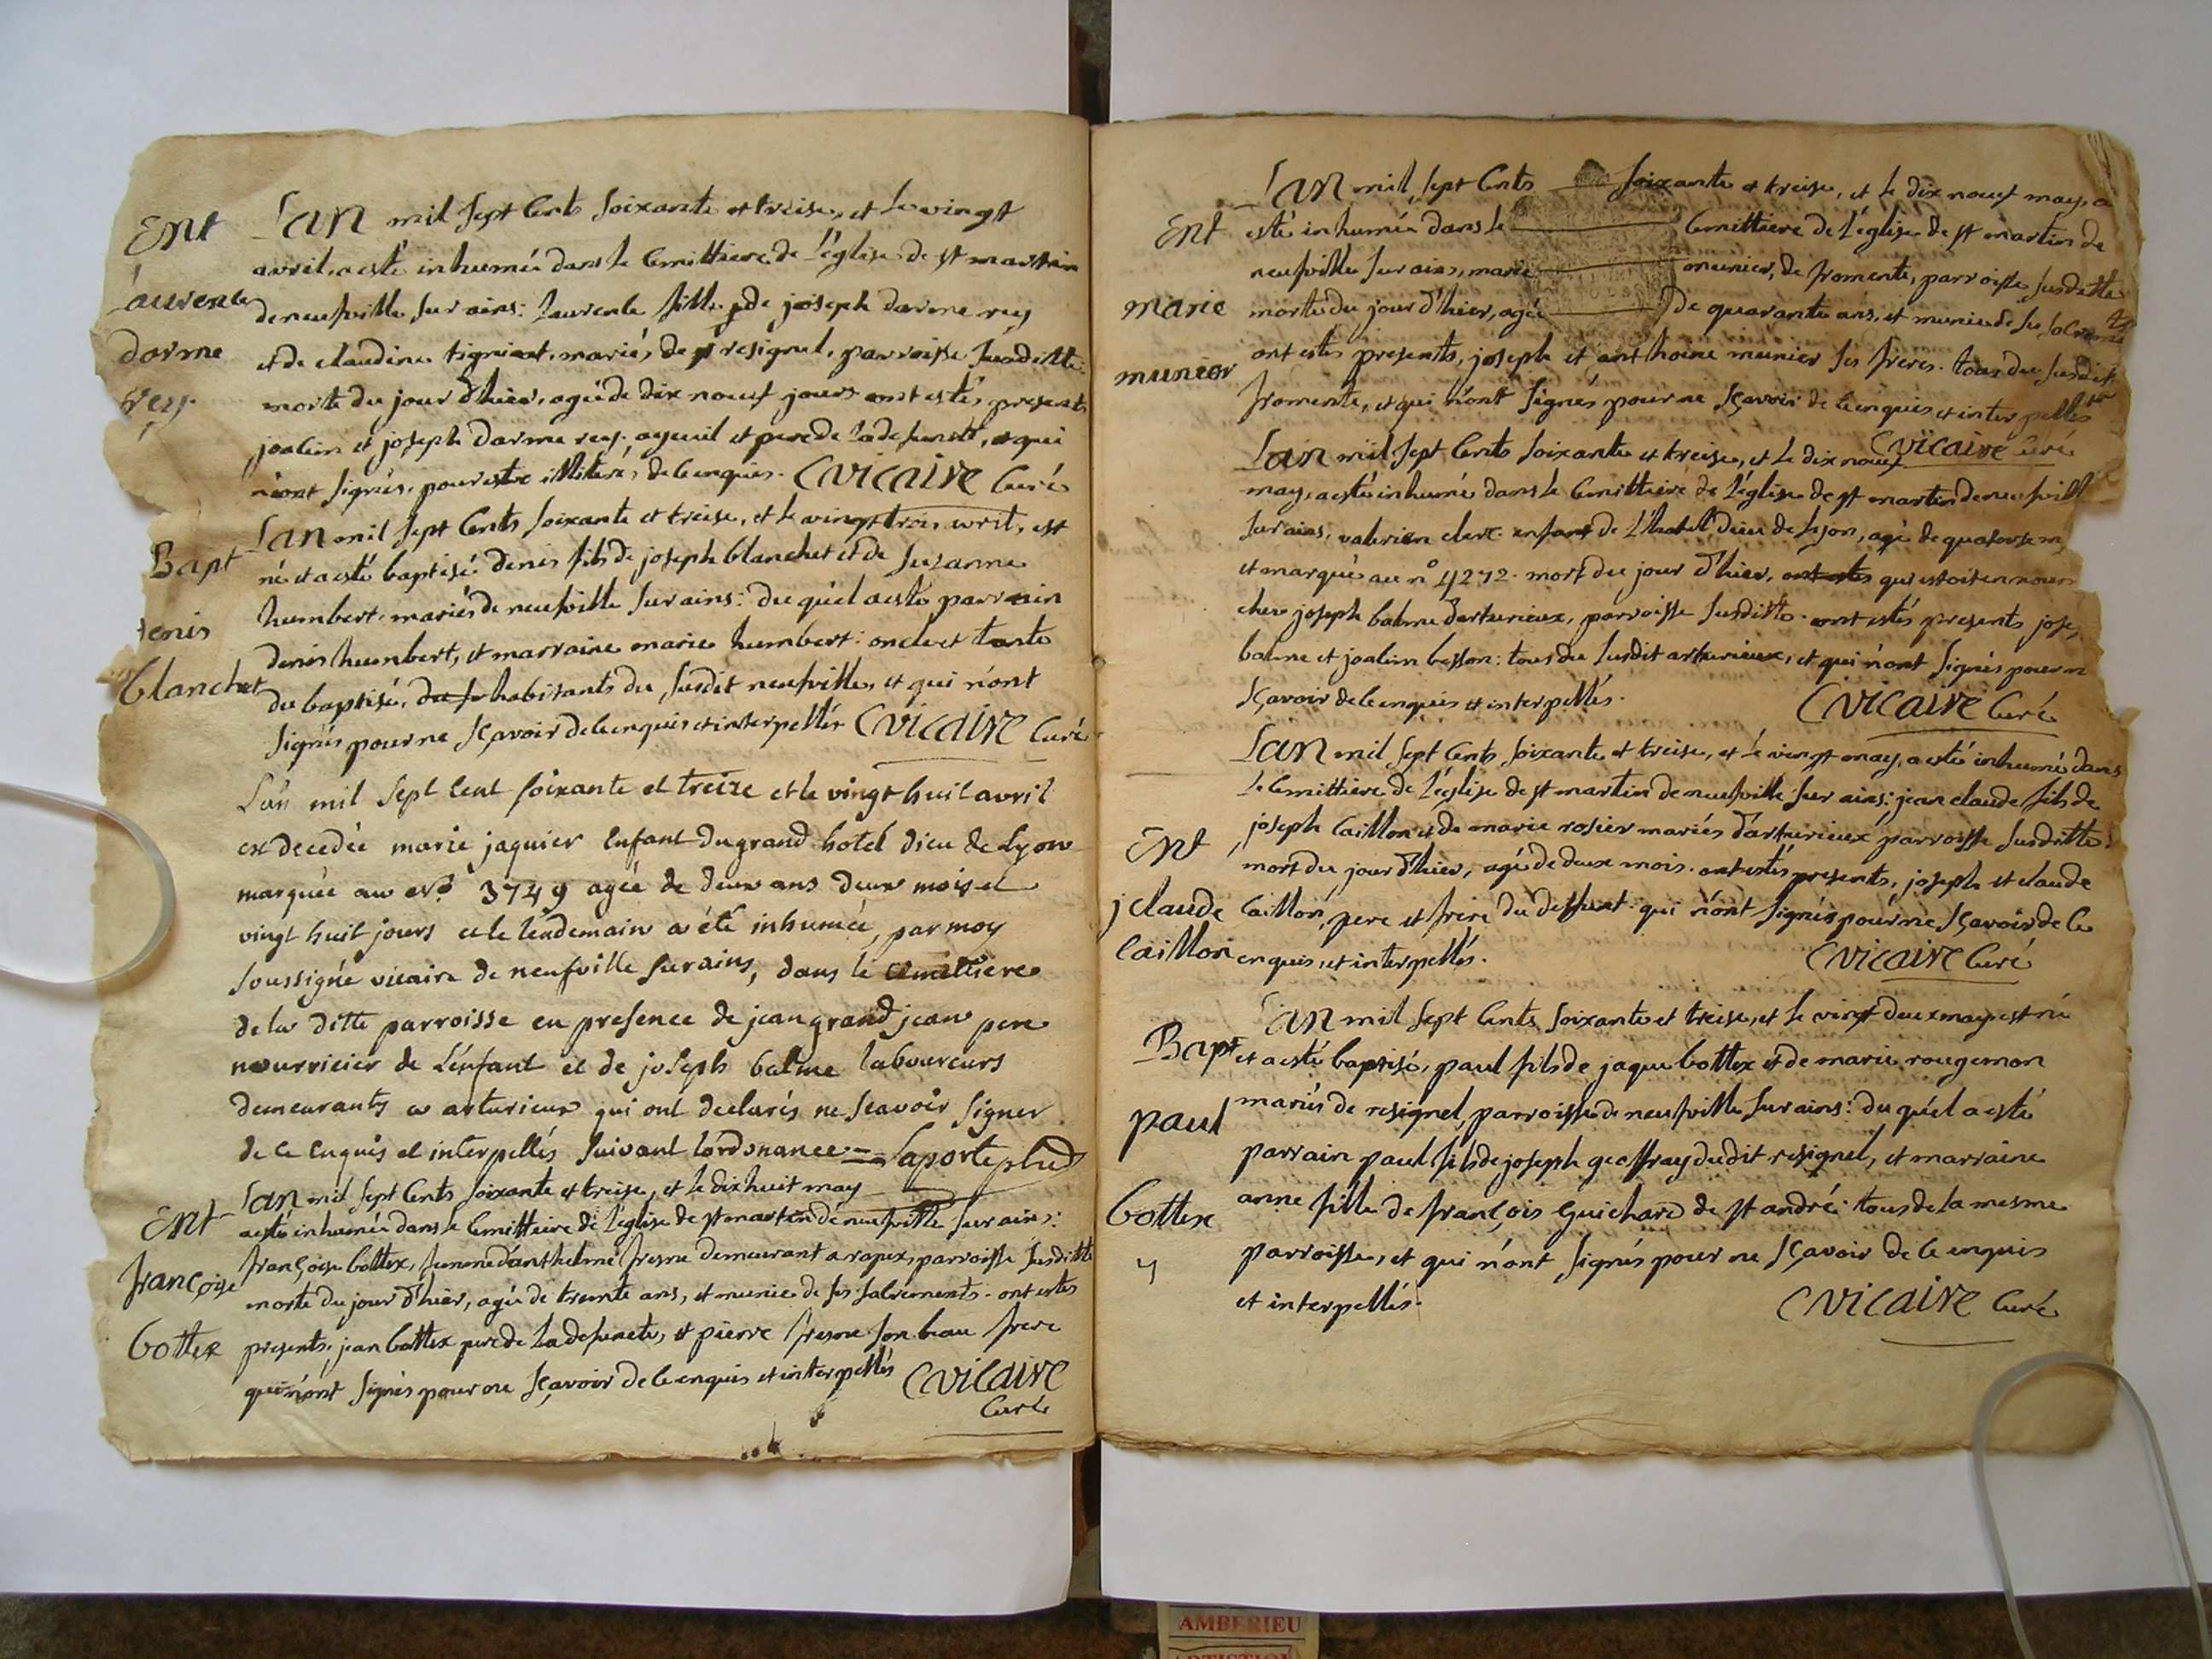 Ent
Laurence
Darme
rey
L'an mil sept Cents soixante et treise, et le vingt
avril, a esté inhumée dans le Cemittiere de l'église de st martin
de neufville sur ains: Laurence fille de joseph darme rey
et de claudine tigniat, mariés de resignel, parroisse susditte
morte du jour d'hier, agée de dix neuf jours ont estés presents
joachim et joseph darme rey, ayeuil et pere de la defuncte, et qui
n'ont signés, pour estre illiterés de ce enquis. Cvicaire Curé
Bapt
denis
blanchet
L'an mil sept Cents soixante et treise, et le vingt trois avril, est
né et a esté baptisé denis fils de joseph blanchet et de suzanne
humbert, mariés de neufville sur ains: du quel a esté parrain
denis humbert, et marraine marie humbert: oncle et tante
du baptisé, habitants du susdit neufville, et qui n'ont
signés pour ne sçavoir de ce enquis et interpellés Cvicaire Curé
L'an mil sept cent soixante et treize et le vingt huit avril
est decedée marie jaquier enfant du grand hotel dieu de Lyon
marquée au No. 3749 agée de deux ans deux mois et
vingt huit jours et le lendemain a été inhumée, par moy
soussigné vicaire de neufville sur ains, dans le cimetiere
de la ditte parroisse en presence de jean grand jean pere
nourricier de l'enfant et de joseph balme laboureurs
demeurants a arturieux qui ont declarés ne scavoir signer
de ce enquis et interpellés suivant l'ordonnance = Laporte
Ent
françoise
bottex
L'an mil sept Cents soixante et treise, et le dix huit may
a esté inhumée dans le Cemittiere de l'église de st martin de neufville sur ains:
françoise bottex, femme d'anthelme fresne demeurant a ropex, parroisse susditte
morte du jour d'hier, agée de trente ans, et munie de ses sacrements. ont estés
presents, jean bottex pere de la defuncte, et pierre fresne son beau frere
qui n'ont signés pour ne sçavoir de ce enquis et interpellés Cvicaire
Curé
Ent
marie
munier
L'an mil sept Cents soixante et treise, et le dix neuf may, a
esté inhumée dans le Cemittiere de l'église de st martin de
neufville sur ains, marie munier, de fromente, parroisse susditte
morte du jour d'hier, agée de quarante ans, et munie de ses sacrements
ont estés presents, joseph et anthoine munier ses freres. tous du susdit
fromente, et qui n'ont signés pour ne sçavoir de ce enquis et interpellés
Cvicaire Curé
L'an mil sept Cents soixante et treise, et le dix neuf
may, a esté inhumé dans le Cemittiere de l'église de st martin de neufvill
sur ains, valerien clerc enfant de l'hotel dieu de lyon, agé de quatorse m
et marqué au n° 4272. mort du jour d'hier, ont estés qui estoit en nour
chez joseph balme d'arturieux, parroisse susditte. ont estés presents jose
balme et joachim besson: tous du susdit arturieux, et qui n'ont signés pour n
sçavoir de ce enquis et interpellés. Cvicaire Curé
Ent
j claude
Caillon
L'an mil sept Cents soixante et treise, et le vingt may, a esté inhumé dans
le Cemittiere de l'église de st martin de neufville sur ains: jean claude fils de
joseph Caillon et de marie rosier mariés d'arturieux parroisse susditte:
mort du jour d'hier, agé de deux mois. ont estés presents, joseph et claude
Caillon, pere et frere du deffunt. qui n'ont signés pour ne sçavoir de ce
enquis, et interpellés. Cvicaire Curé
Bapt
paul
bottex
L'an mil sept Cents soixante et treise, et le vingt deux may, est né
et a esté baptisé, paul fils de jaque bottex et de marie rougemon
mariés de resignel, parroisse de neufville sur ains: du quel a esté
parrain paul fils de joseph geoffray dudit resignel, et marraine
anne fille de françois Guichard de st andré: tous de la mesme
parroisse, et qui n'ont signés pour ne sçavoir de ce enquis
et interpellés. Cvicaire Curé
AMBERIEU